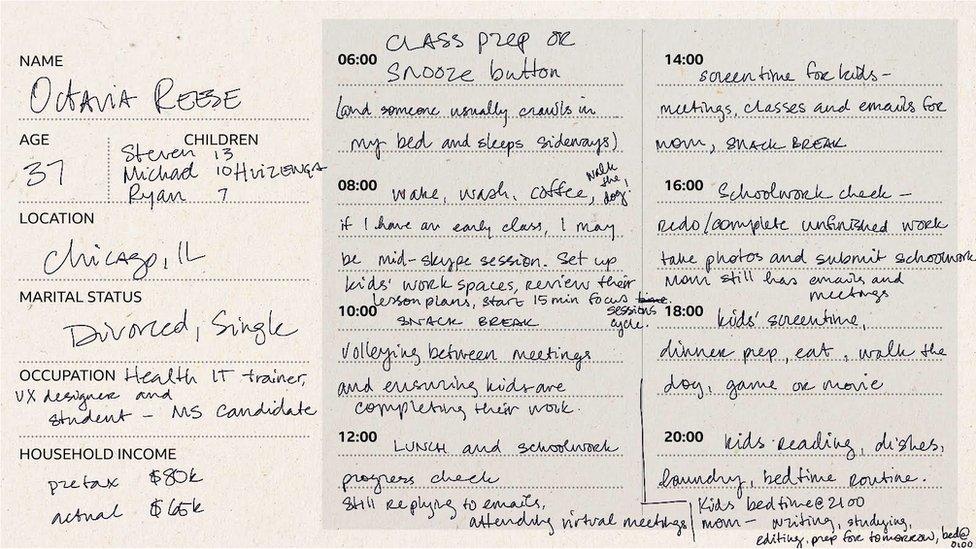 NAME
OCTAVIA REESE
AGE
37
CHILDREN
Steven 13
Michael 10 HUIZENGA
Ryan 7
LOCATION
Chicago, IL
MARITAL STATUS
Divorced, Single
OCCUPATION Health IT trainer,
UX designer and
student - MS candidate
HOUSEHOLD INCOME
pretax $80k
actual $65k
06:00 CLASS prep OR
SNOOZE button
(and someone usually crawls in
my bed and sleeps sideways)
08:00 wake, wash, coffee, walk the dog!
if I have an early class, I may
be mid-skype session. Set up
kids' work spaces, review their
lesson plans, start 15 min focus time sessions cycle.
10:00 SNACK BREAK
Volleying between meetings
and ensuring kids are
completing their work.
12:00 LUNCH and schoolwork
progress check
Still replying to emails,
attending virtual meetings
14:00
screentime for kids-
meetings, classes and emails for
mom, SNACK BREAK
16:00 Schoolwork check -
redo/complete unfinished work
take photos and submit schoolwork
Mom still has emails and
meetings
18:00 kids' screentime,
dinner prep, eat, walk the
dog, game or movie
20:00 kids reading, dishes,
laundry, bedtime routine.
Kids bedtime@2100
mom - writing, studying,
editing, prep for tomorrow, bed@
0100